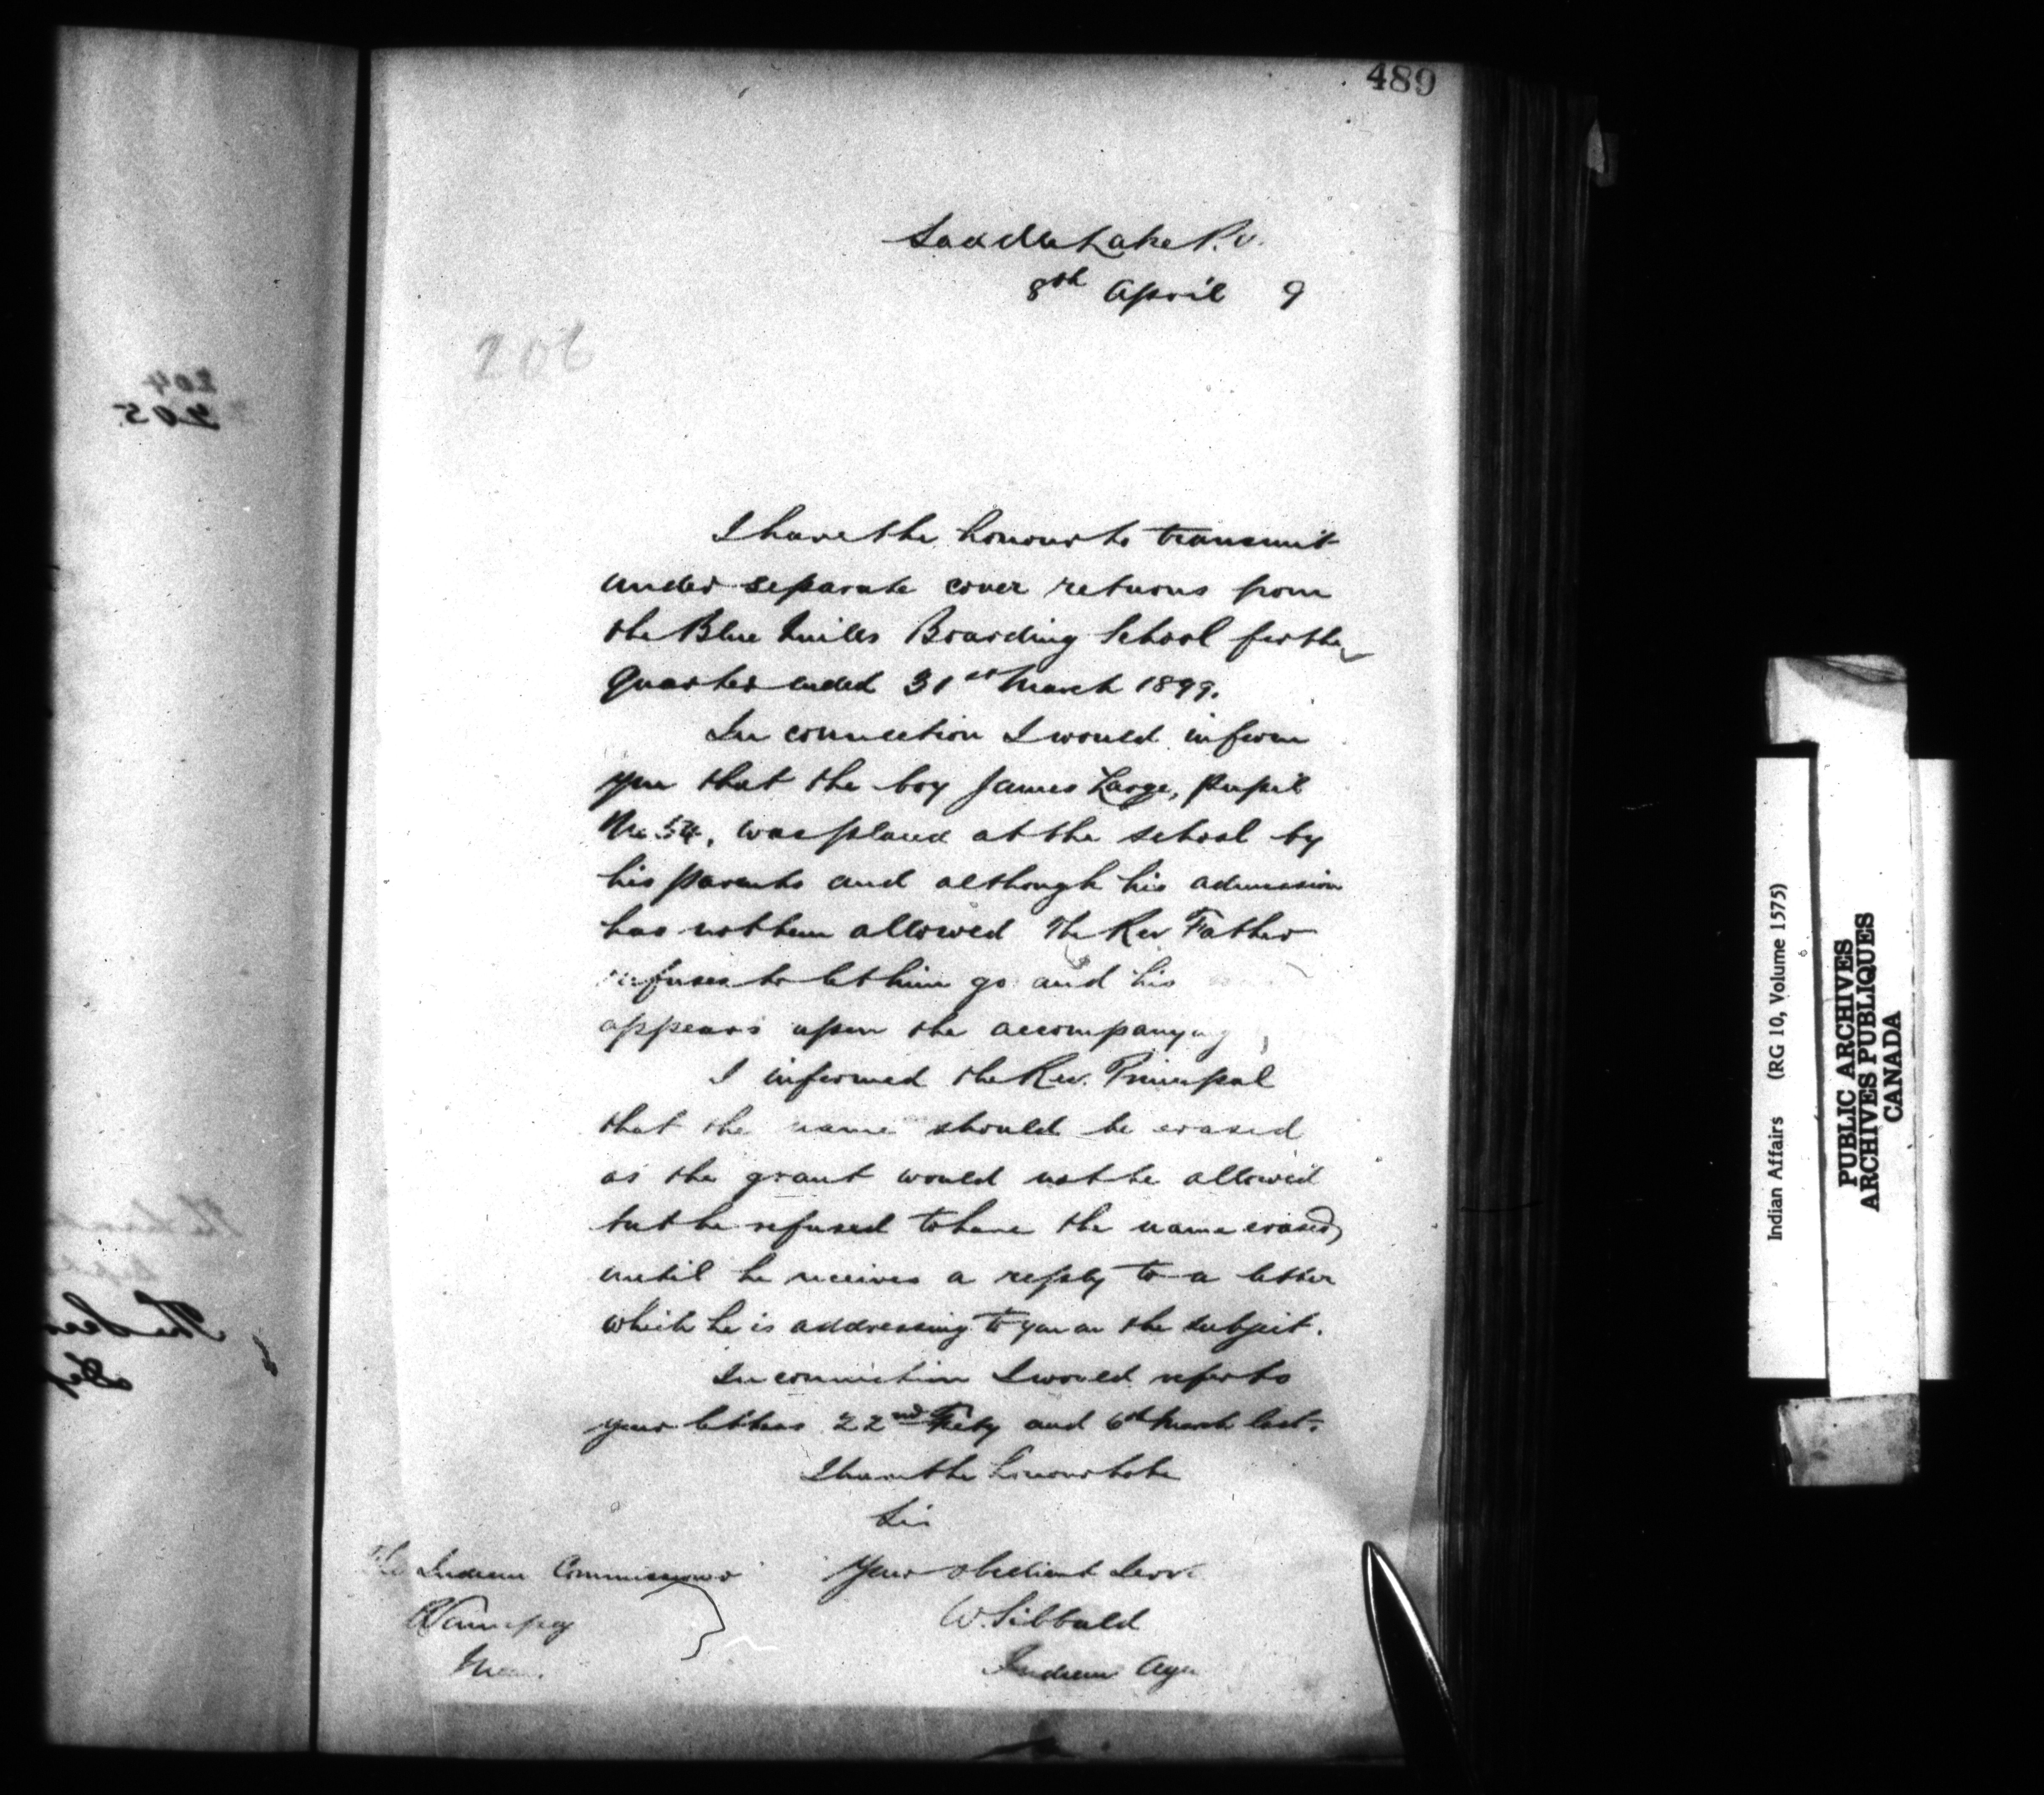 489
Saddle Lake P.O.
8th April 9
206
204
205
I have the honour to transmit
under separate cover returns from
the Blue Quills Boarding School for the
Quarter ended 31st March 1899.
In connection I would inform
you that the boy James Large, Pupil
No 54, was placed at the school by
his parents and although his admission
has not been allowed The Rev Father
refuses to let him go and his
appears upon the accompanying
I informed the Rev. Principal
that the name should be erased
as the grant would not be allowed
but he refused to have the name erased
until he receives a reply to a letter
which he is addressing to you on the subject.
In connection I would refer to
your letters 22nd Feby and 6th March last.
I have the honour to be
Sir
Your obedient Serv.
W. Sibbald
Indian Agen
The Indian Commissioner
Winnipeg
Man.
Indian Affairs (RG 10, Volume 1575)
PUBLIC ARCHIVES
ARCHIVES PUBLIQUES
CANADA